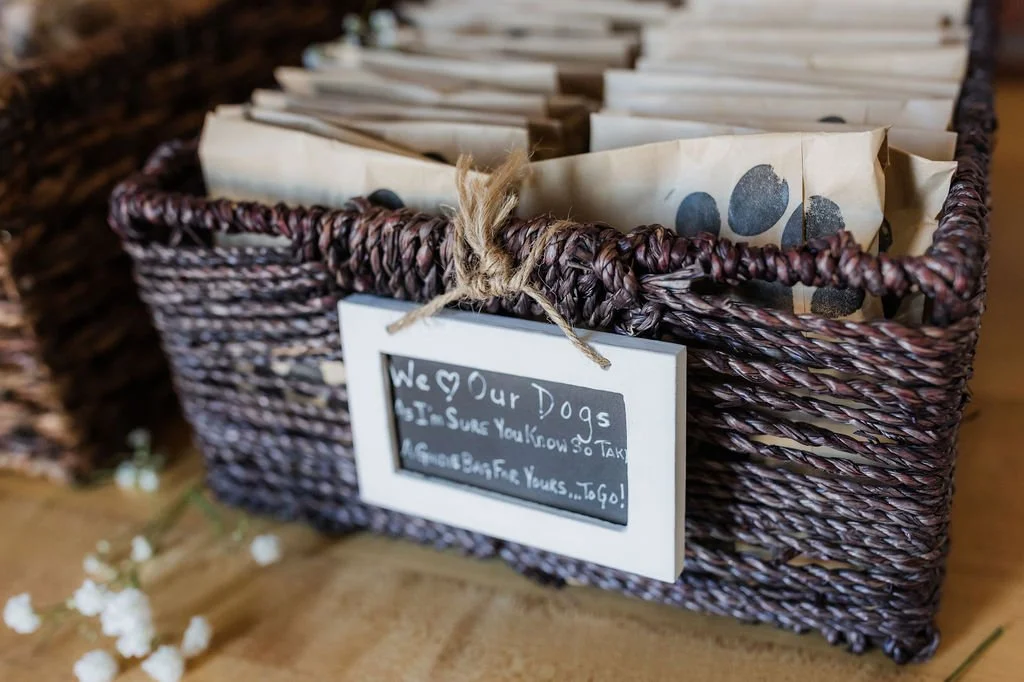 We ♡ Our Dogs
As I'm Sure You Know So Take
A Goodie Bag For Yours...To Go!